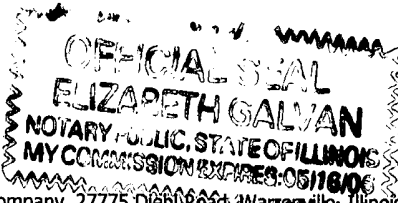 OFFICIAL SEAL
ELIZABETH GALVAN
NOTARY PUBLIC, STATE OF ILLINOIS
MY COMMISSION EXPIRES:05/16/06
ompany, 27775 Diehl Road, Warrenville, Illinois